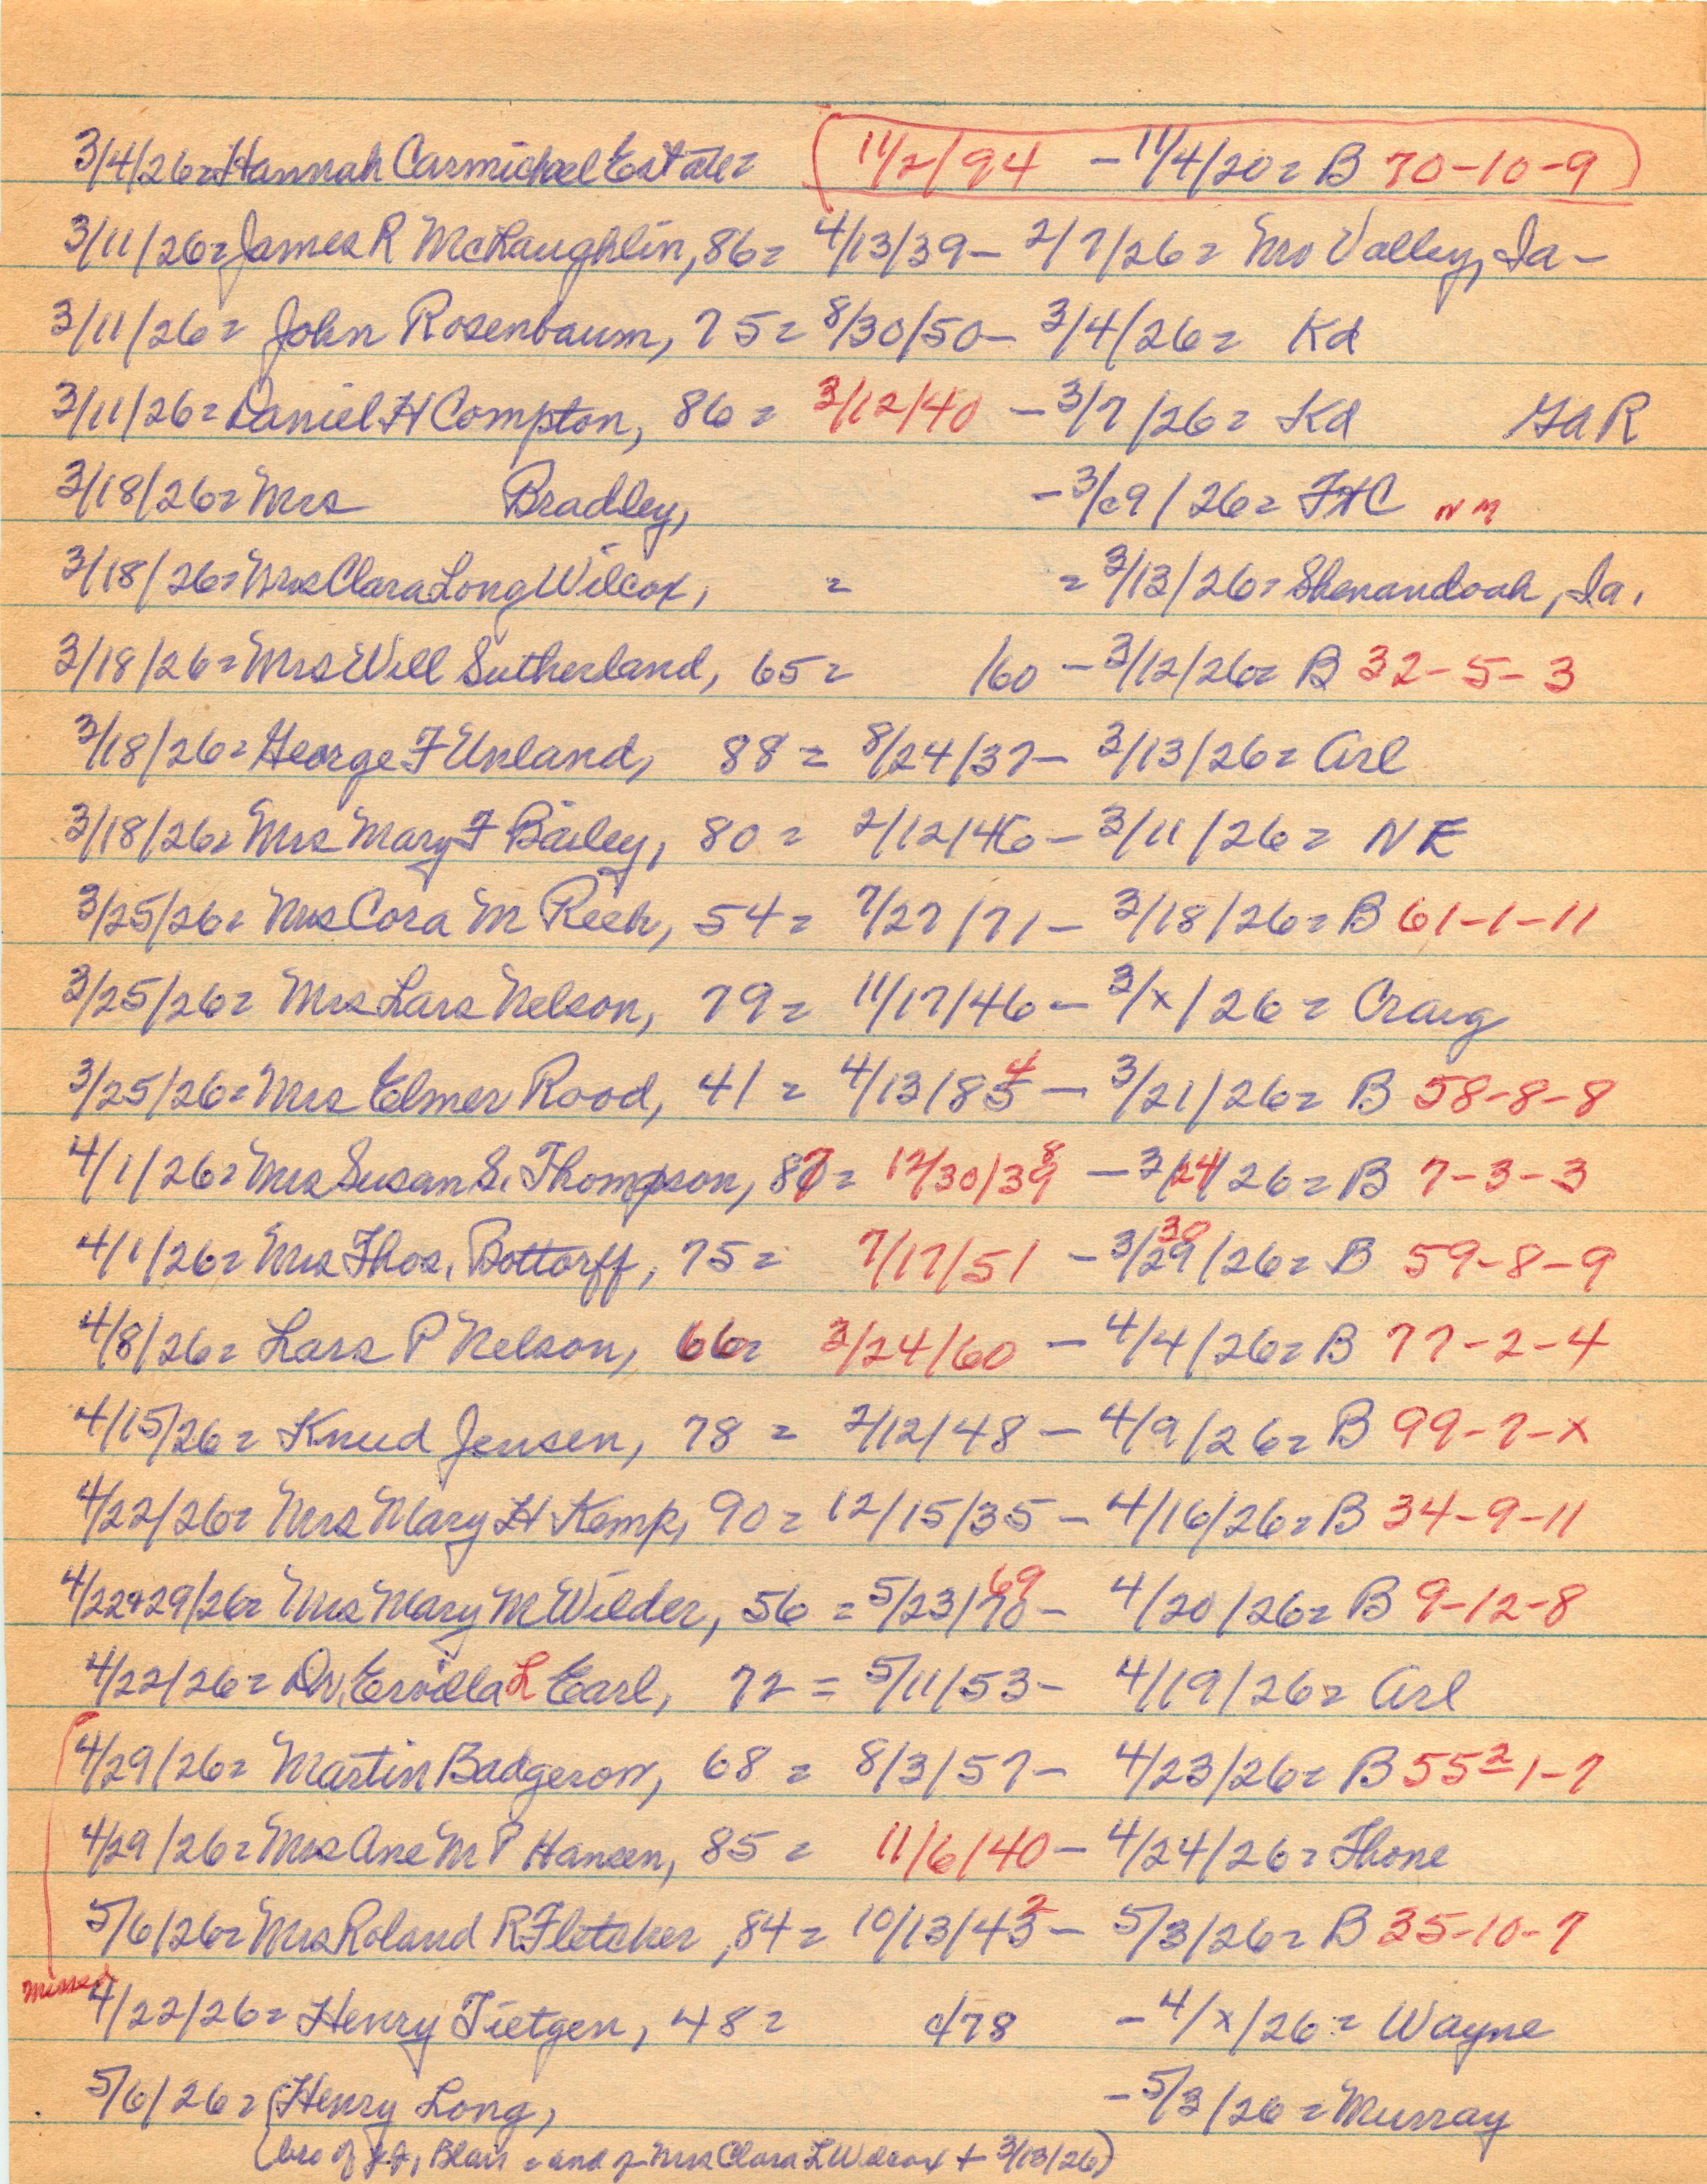 3/4/26= Hannah Carmichael Estate= 11/2/94 - 11/4/20= B 70-10-9
3/11/26= James R McLaughlin, 86= 4/13/39- 2/7/26= Mo Valley, Ia-
3/11/26= John Rosenbaum, 75= 8/30/50- 3/4/26= Kd
3/11/26= Daniel H Compton, 86= 3/12/40 - 3/7/26= Kd GAR
3/18/26= Mrs Bradley, - 3/c9/26= FHC NM
3/18/26= Mrs Clara Long Wilcox, = = 3/13/26= Shenandoah, Ia.
3/18/26= Mrs Will Sutherland, 65= /60 - 3/12/26= B 32-5-3
3/18/26= George F Unland, 88= 8/24/37- 3/13/26= Arl
3/18/26= Mrs Mary F Bailey, 80= 2/12/46- 3/11/26= NE
3/25/26= Mrs Cora M Reeh, 54= 7/27/71- 3/18/26= B 61-1-11
3/25/26= Mrs Lars Nelson, 79= 11/17/46- 3/x/26= Craig
4
3/25/26= Mrs Elmer Rood, 41= 4/13/85- 3/21/26= B 58-8-8
8
4/1/26= Mrs Susan S. Thompson, 87= 12/30/39 - 3/24/26= B 7-3-3
30
4/1/26= Mrs Thos. Bottorff, 75= 7/17/51 - 3/29/26= B 59-8-9
4/8/26= Lars P Nelson, 66= 3/24/60 - 4/4/26= B 77-2-4
4/15/26= Knud Jensen, 78= 2/12/48- 4/9/26= B 99-7-x
4/22/26= Mrs Mary H Kemp, 90= 12/15/35- 4/16/26= B 34-9-11
69
4/22+29/26= Mrs Mary M Wilder, 56= 5/23/70- 4/20/26= B 9-12-8
4/22/26= Dr. Ervilla L Earl, 72= 5/11/53- 4/19/26= Arl
4/29/26= Martin Badgerow, 68= 8/3/57- 4/23/26= B 55 2 1-7
4/29/26= Mrs Ane M P Hansen, 85= 11/6/40- 4/24/26= Fhone
2
5/6/26= Mrs Roland R Fletcher, 84= 10/13/43- 5/3/26= B 35-10-7
missed 4/22/26= Henry Tietgen, 48= c/78 - 4/x/26= Wayne
5/6/26= (Henry Long, - 5/3/26= Murray
(bro of J.F., Blair = and of Mrs Clara L Wilcox + 3/13/26)